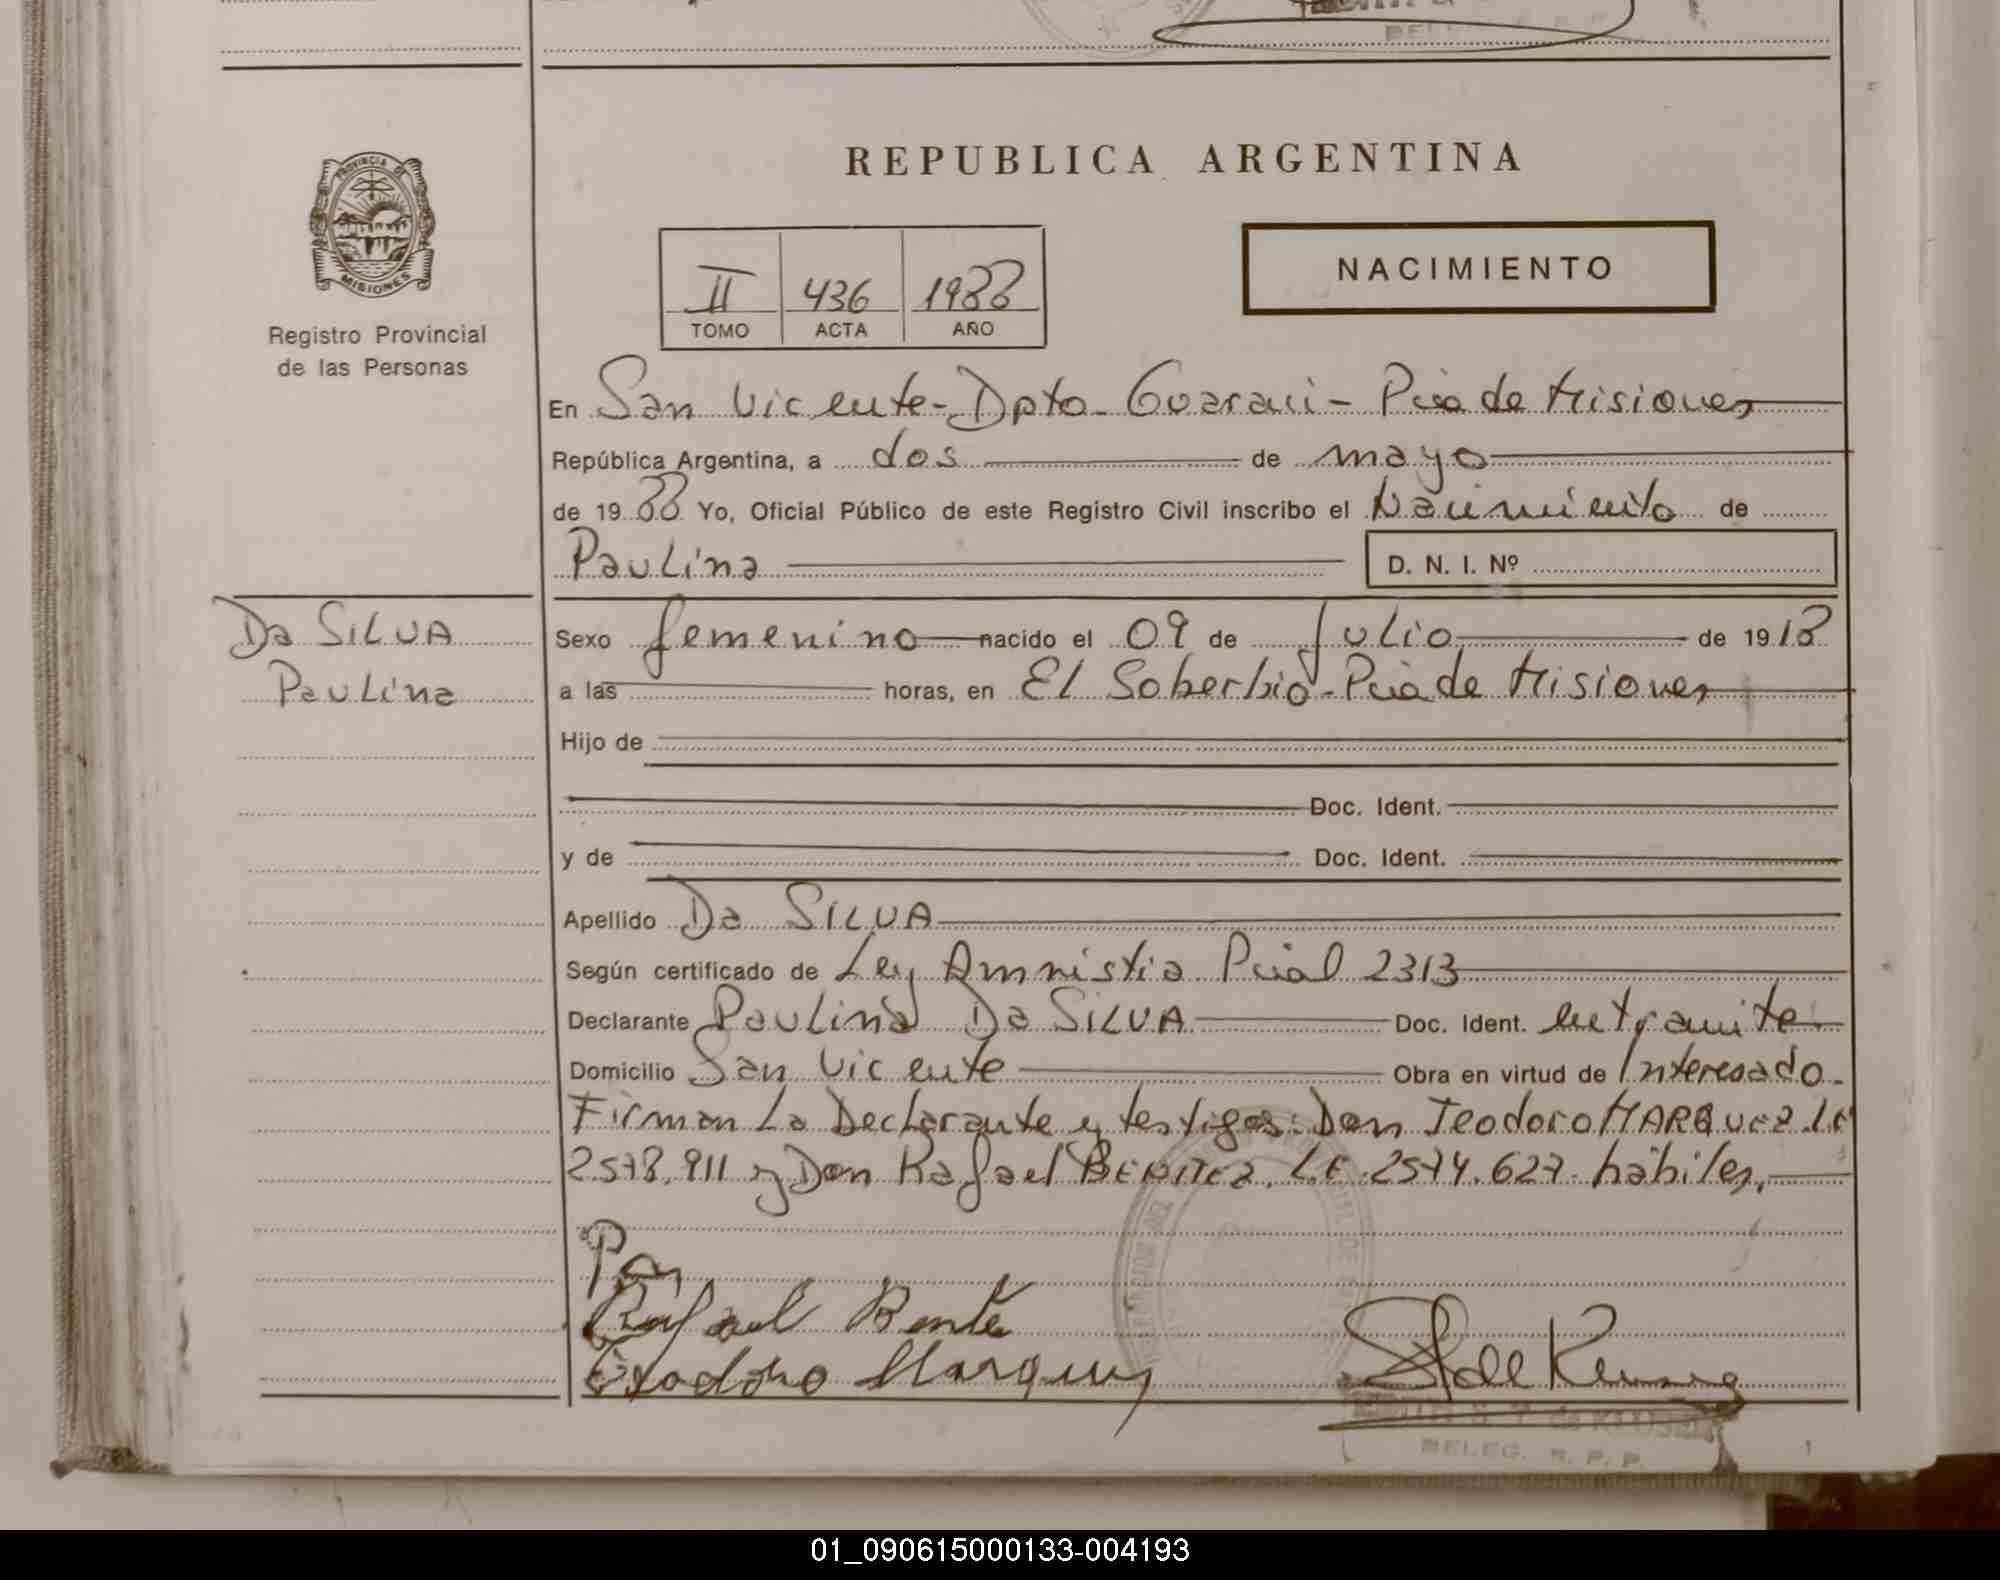 REPUBLICA ARGENTINA
PROVINCIA DE
MISIONES
Registro Provincial
de las Personas
II 436 1988
TOMO ACTA AÑO
NACIMIENTO
En San Vicente - Dpto - Guarani - Pcia de Misiones
República Argentina, a dos de mayo
de 1988 Yo, Oficial Público de este Registro Civil inscribo el Nacimiento de
Paulina D. N. I. Nº
Da SILVA
Paulina
Sexo femenino nacido el 09 de Julio de 1918
a las horas, en El Soberbio - Pcia de Misiones
Hijo de
Doc. Ident.
y de Doc. Ident.
Apellido Da SILVA
Según certificado de Ley Amnistia Pcial 2313
Declarante Paulina Da SILVA Doc. Ident. en tramite
Domicilio San Vicente Obra en virtud de Interesado.
Firman La Declarante y testigos: Don Teodoro MARQUEZ. LE
2578.911 y Don Rafael BENITEZ. L.E. 2574.627. hábiles.
Rafael Benite
Teodoro Marquez
DELEG. R. P. P.
01_090615000133-004193